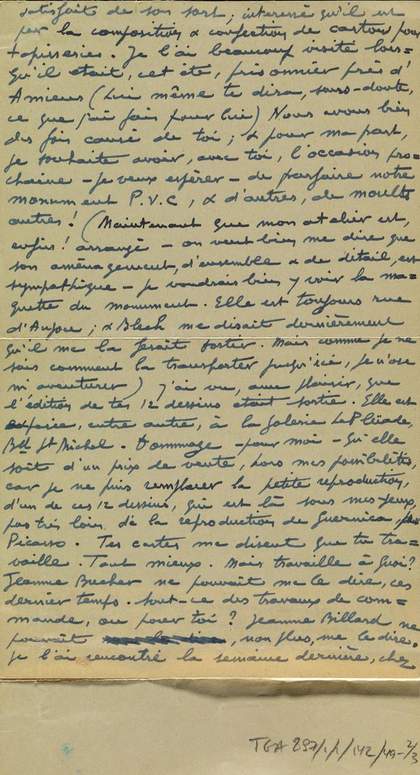 satisfait de son sort; intéressé qu'il est
par la composition & confection de cartons pour
tapisseries. Je l'ai beaucoup visité lors-
qu'il était, cet été, prisonnier près d'
Amiens (Lui même te dira, sans-doute,
ce que j'ai fait pour lui) Nous avons bien
des fois causé de toi; & pour ma part,
je souhaite avoir, avec toi, l'occasion pro-
chaine - je veux espérer - de parfaire notre
monument P.V.C, & d'autres, de moults
autres! (Maintenant que mon atelier est,
enfin! arrangé - on veut bien me dire que
son aménagement, d'ensemble & de détail, est
sympathique - je voudrais bien y voir la ma-
quette du monument. Elle est toujours rue
d'Anjou; & Blech me disait dernièrement
qu'il me la ferait porter. Mais comme je ne
sais comment la transporter jusqu'ici, je n'ose
m'aventurer) J'ai vu, avec plaisir, que
l'édition de tes 12 dessins était sortie. Elle est
exposée, entre autre, à la Galerie La Pléiade,
Bld St Michel. Dommage - pour moi - qu'elle
soit d'un prix de vente, hors mes possibilités,
car je ne puis remplacer la petite reproduction,
d'un de ces 12 dessins, qui est là sous mes yeux,
pas très loin de la reproduction de Guernica, de
Picasso. Tes cartes me disent que tu tra-
vailles. Tant mieux. Mais travaille à quoi?
Jeanne Bucher ne pouvait me le dire, ces
dernier temps. Sont-ce des travaux de com-
mande, ou pour toi? Jeanne Billard ne
pouvait, non plus, me le dire.
Je l'ai rencontré la semaine dernière, chez
TGA 897/1/1/142/49-2/3